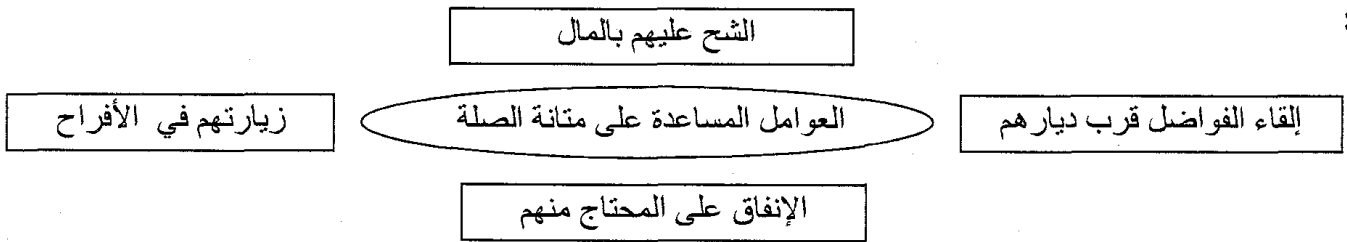 الشح عليهم بالمال
إلقاء الفواضل قرب ديارهم
العوامل المساعدة على متانة الصلة
زيارتهم في الأفراح
الإنفاق على المحتاج منهم